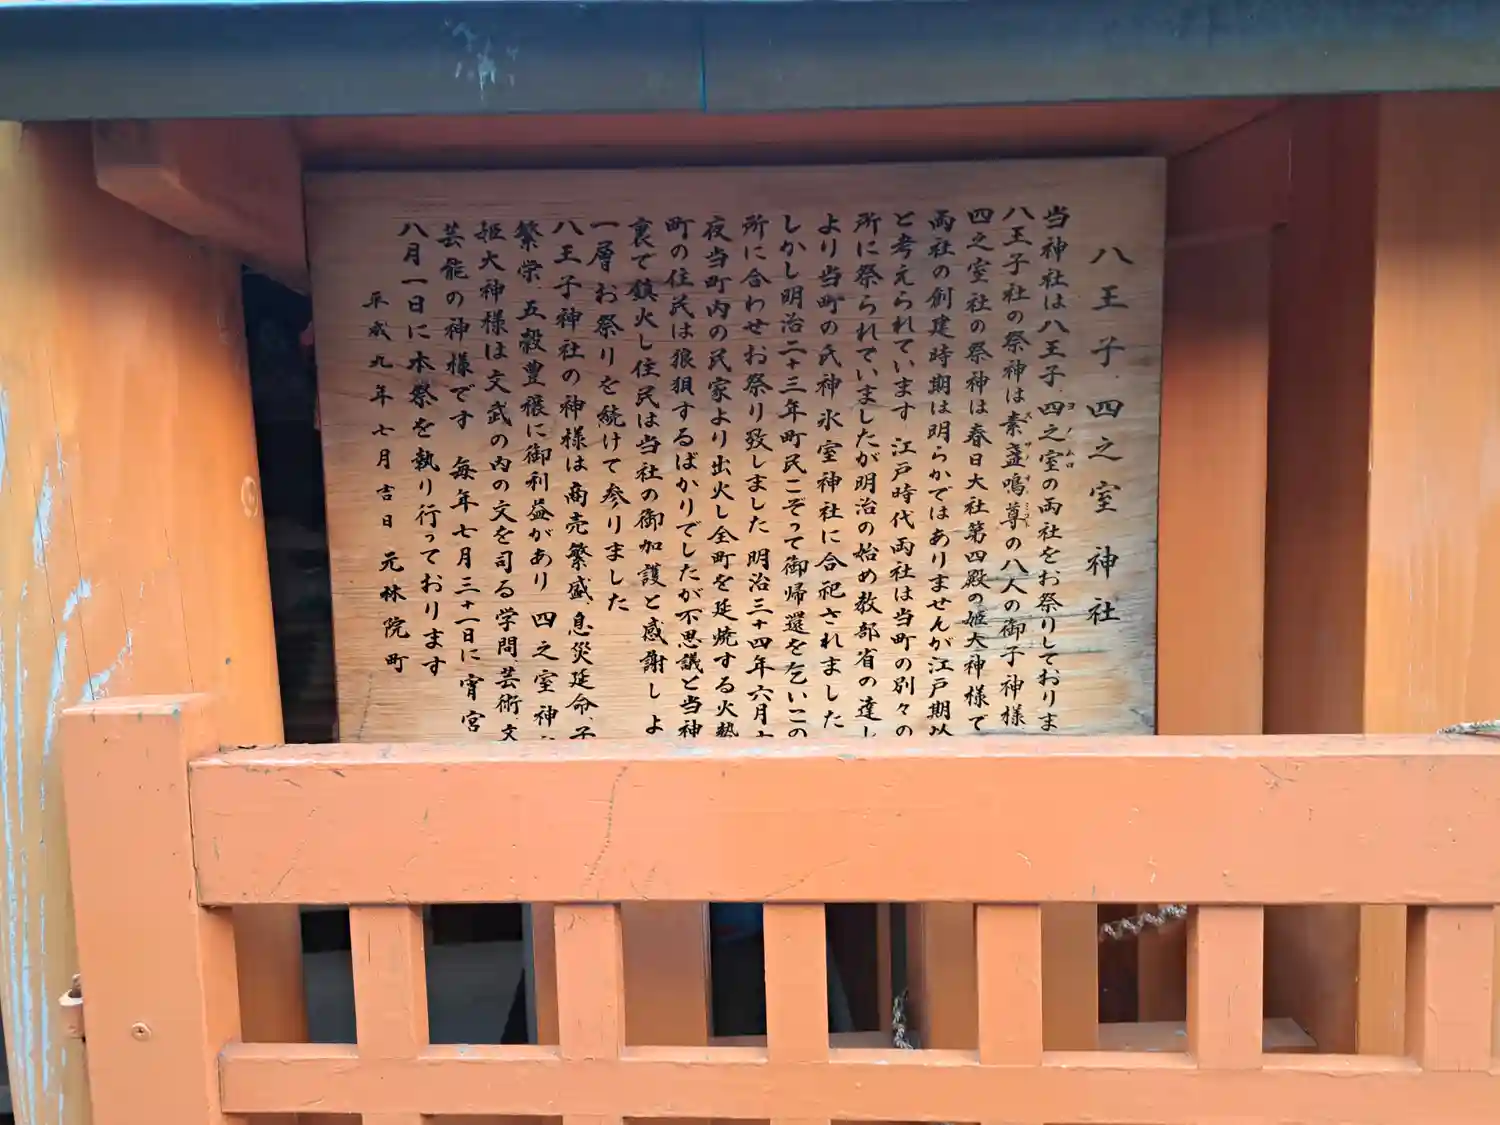 八王子、四之室 神社
当神社は八王子、四之室の両社をお祭りしておりま
ヨノムロ
八王子社の祭神は素盞嗚尊の八人の御子神様
スサノオノミコト
四之室社の祭神は春日大社第四殿の姫大神様で
両社の創建時期は明らかではありませんが江戸期以
と考えられています 江戸時代両社は当町の別々の
所に祭られていましたが明治の始め教部省の達し
より当町の氏神氷室神社に合祀されました
しかし明治二十三年町民こぞって御帰還を乞いこの
所に合わせお祭り致しました 明治三十四年六月
夜当町内の民家より出火し全町を延焼する火勢
町の住民は狼狽するばかりでしたが不思議と当神
裏で鎮火し住民は当社の御加護と感謝しよ
一層お祭りを続けて参りました
八王子神社の神様は商売繁盛、息災延命、子
繁栄、五穀豊穣に御利益があり 四之室神
姫大神様は文武の内の文を司る学問、芸術、文
芸能の神様です 毎年七月三十一日に宵宮
八月一日に本祭を執り行っております
平成九年七月吉日 元林院町